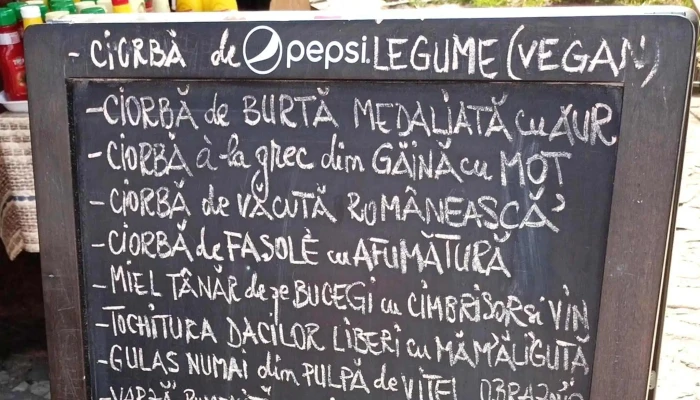 - CIORBĂ de pepsi LEGUME (VEGAN)
- CIORBĂ de BURTĂ MEDALIATĂ cu AUR
- CIORBĂ à-la grec din GĂINĂ cu MOȚ
- CIORBĂ de VĂCUTĂ ROMÂNEASCĂ
- CIORBĂ de FASOLÈ cu AFUMĂTURĂ
- MIEL TÂNĂR de pe BUCEGI cu CIMBRISOR si VIN
- TOCHITURA DACILOR LIBERI cu MĂMĂLIGUTĂ
- GULAS NUMAI din PULPĂ de VITEL OBRAZNIC
- VARZĂ